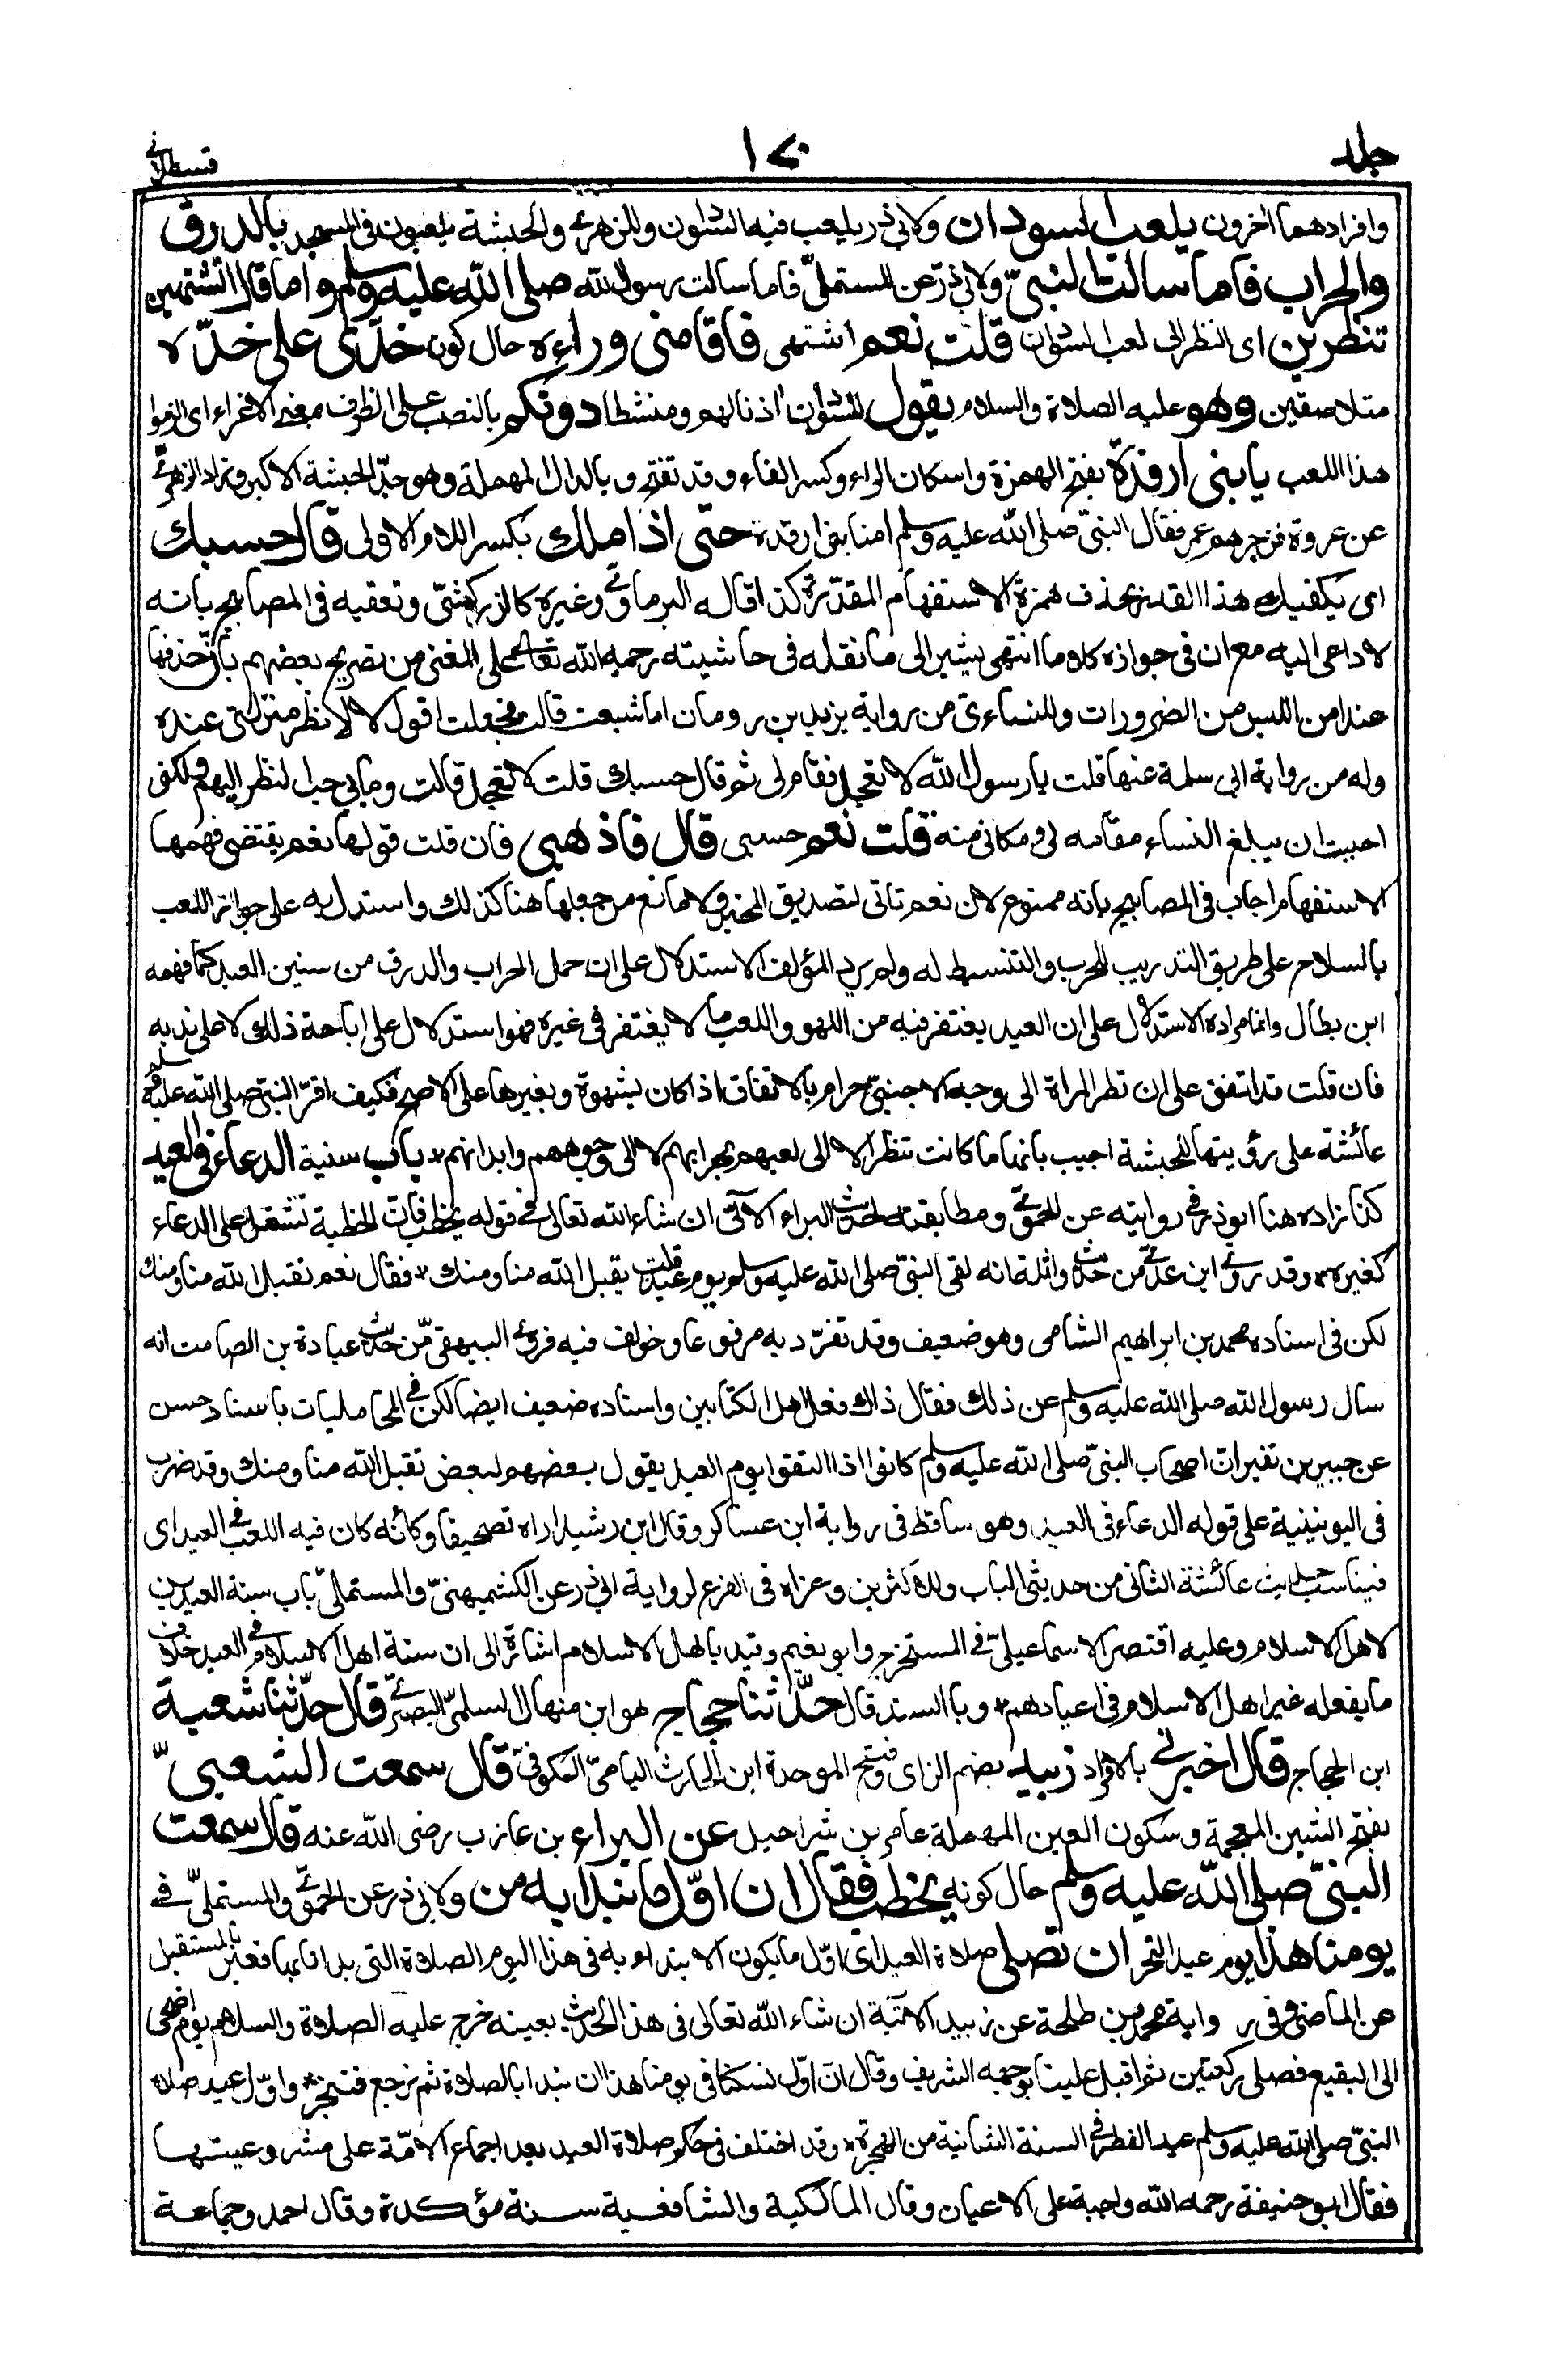 جلد
١٧٠
قسطلانی
وافرادهما اخرون يلعب السودان ولابي ذر يلعب فيه السودان وللزهري والحبشة يلعبون في المسجد بالدرق
والحراب فاما سالت النبي ولابي ذر عن المستملي فاما سالت رسول الله صلى الله عليه وسلم واما قال اتشتهين
تنظرين اى النظر الى لعب السودان قلت نعم اشتهى فاقامنى وراءه حال كون خدّى على خدّه
متلاصقين وهو عليه الصلاة والسلام يقول للسودان اذنا لهم ومنشطا دونكم بالنصب على الظرف بمعنى الاغراء اى الزموا
هذا اللعب يا بنى ارفدة بفتح الهمزة واسكان الراء وكسر الفاء وقد تفتح وبالدال المهملة وهو جدّ الحبشة الاكبر وزاد الزهري
عن عروة فزجرهم عمر فقال النبي صلى الله عليه وسلم امنا بنى ارفدة حتى اذا مللت بكسر اللام الاولى قال حسبك
اى يكفيك هذا القدر بحذف همزة الاستفهام المقدرة كذا قاله البرماوي وغيره كالزركشي وتعقبه في المصابيح بانه
لا داعى اليه مع ان في جوازه كلاما انتهى يشير الى ما نقله في حاشيته رحمه الله تعالى على المغنى من تصريح بعضهم بان حذفها
عند امن اللبس من الضرورات وللنساءى من رواية يزيد بن رومان اما شبعت قالت فجعلت اقول لا لانظر منزلتى عنده
وله من رواية ابى سلمة عنها قلت يا رسول الله لا تعجل فقام لى ثم قال حسبك قلت لا تعجل قالت وما بى حب النظر اليهم ولكنى
احببت ان يبلغ النساء مقامه لى ومكانى منه قلت نعم حسبى قال فاذهبى فان قلت قولها نعم يقتضى فهمها
الاستفهام اجاب في المصابيح بانه ممنوع لان نعم تاتى لتصديق المخبر ولا مانع من جعلها هنا كذلك واستدل به على جواز اللعب
بالسلاح على طريق التدريب للحرب والتنشيط له ولم يرد المؤلف الاستدلال على ان حمل الحراب والدرق من سنن العيد كما فهمه
ابن بطال وانما مراده الاستدلال على ان العيد يغتفر فيه من اللهو واللعب ما لا يغتفر في غيره فهو استدلال على اباحة ذلك لا على ندبه
فان قلت قد اتفق على ان نظر المراة الى وجه الاجنبي حرام بالاتفاق اذا كان بشهوة وبغيرها على الاصح فكيف اقر النبي صلى الله عليه وسلم
عائشة على رؤيتها للحبشة اجيب بانها ما كانت تنظر الا الى لعبهم بحرابهم لا الى وجوههم وابدانهم * باب سنية الدعاء في العيد
كذا زاده هنا ابو ذر في روايته عن الحموي ومطابقته لحديث البراء الآتى ان شاء الله تعالى في قوله يخطب فان الخطبة تشتمل على الدعاء
كغيره * وقد روى ابن عدي من حديث واثلة انه لقى النبي صلى الله عليه وسلم يوم عيد فقلت يقبل الله منا ومنك * فقال نعم تقبل الله منا ومنك
لكن في اسناده محمد بن ابراهيم الشامى وهو ضعيف وقد تفرد به مرفوعا وخولف فيه فروى البيهقي من حديث عبادة بن الصامت انه
سال رسول الله صلى الله عليه وسلم عن ذلك فقال ذاك فعل اهل الكتابين واسناده ضعيف ايضا لكن في المحامليات باسناد حسن
عن جبير بن نفير ان اصحاب النبي صلى الله عليه وسلم كانوا اذا التقوا يوم العيد يقول بعضهم لبعض تقبل الله منا ومنك وقد ضرب
في اليونينية على قوله الدعاء في العيد وهو ساقط في رواية ابن عساكر وقال ابن رشيد اراه تصحيفا وكأنه كان فيه اللعب في العيد اى
فيناسب حديث عائشة الثانى من حديثي الباب وللاكثرين وعزاه في الفرع لرواية ابي ذر عن الكشميهنى والمستملي باب سنة العيدين
لاهل الاسلام وعليه اقتصر الاسماعيلي في المستخرج وابو نعيم وقيد باهل الاسلام اشارة الى ان سنة اهل الاسلام في العيد خلاف
ما يفعله غير اهل الاسلام في اعيادهم * وبالسند قال حدّثنا حجاج هو ابن منهال السلمي البصري قال حدّثنا شعبة
ابن الحجاج قال اخبرنى بالافراد زبيد بضم الزاى وفتح الموحدة ابن الحارث اليامى الكوفى قال سمعت الشعبى
بفتح الشين المعجمة وسكون العين المهملة عامر بن شراحيل عن البراء بن عازب رضى الله عنه قال سمعت
النبي صلى الله عليه وسلم حال كونه يخطب فقال ان اوّل ما نبدا به من ولابي ذر عن الحموي والمستملي في
يومنا هذا يوم عيد النحر ان نصلى صلاة العيد اى اوّل ما يكون الابتداء به في هذا اليوم الصلاة التى بدانا بها فعبر بالمستقبل
عن الماضى وفي رواية محمد بن طلحة عن زبيد الآتية ان شاء الله تعالى في هذا الحديث بعينه خرج عليه الصلاة والسلام يوم اضحى
الى البقيع فصلى ركعتين ثم اقبل علينا بوجهه الشريف وقال ان اوّل نسكنا في يومنا هذا ان نبدا بالصلاة ثم نرجع فننحر * واوّل عيد صلاه
النبي صلى الله عليه وسلم عيد الفطر في السنة الثانية من الهجرة * وقد اختلف في حكم صلاة العيد بعد اجماع الامّة على مشروعيتها
فقال ابو حنيفة رحمه الله واجبة على الاعيان وقال المالكية والشافعية سنة مؤكدة وقال احمد وجماعة